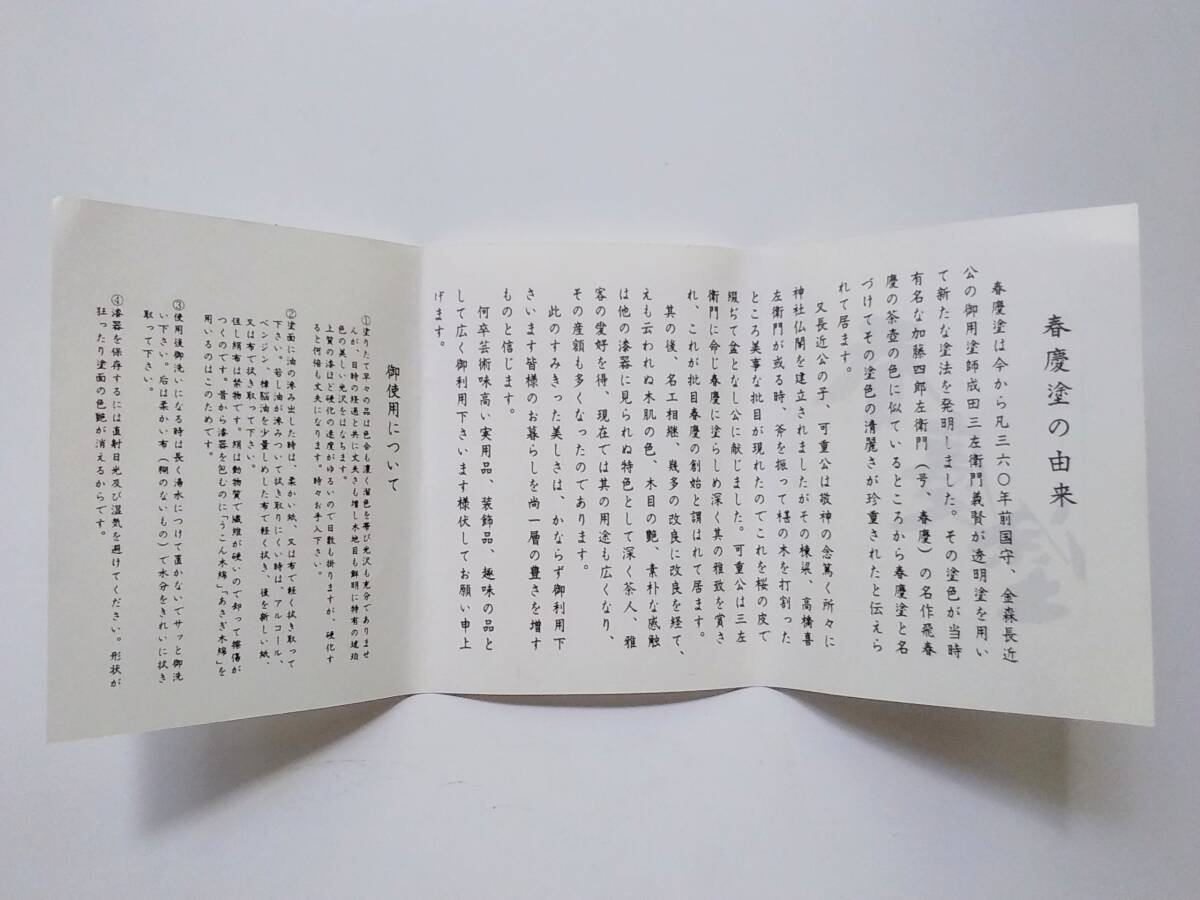 春慶塗の由来
春慶塗は今から凡三六〇年前国守、金森長近
公の御用塗師成田三左衛門義賢が透明塗を用い
て新たな塗法を発明しました。その塗色が当時
有名な加藤四郎左衛門(号、春慶)の名作飛春
慶の茶壺の色に似ているところから春慶塗と名
づけてその塗色の清麗さが珍重されたと伝えら
れて居ます。
又長近公の子、可重公は敬神の念篤く所々に
神社仏閣を建立されましたがその棟梁、高橋喜
左衛門が或る時、斧を振って椹の木を打割った
ところ美事な批目が現れたのでこれを桜の皮で
綴ぢて盆となし公に献じました。可重公は三左
衛門に命じ春慶に塗らしめ深く其の雅致を賞さ
れ、これが批目春慶の創始と謂はれて居ます。
其の後、名工相継、幾多の改良に改良を経て、
えも云われぬ木肌の色、木目の艶、素朴な感触
は他の漆器に見られぬ特色として深く茶人、雅
客の愛好を得、現在では其の用途も広くなり、
その産額も多くなったのであります。
此のすみきった美しさは、かならず御利用下
さいます皆様のお暮らしを尚一層の豊さを増す
ものと信じます。
何卒芸術味高い実用品、装飾品、趣味の品と
して広く御利用下さいます様伏してお願い申上
げます。
御使用について
①塗りたて早々の品は色合も濃く溜色を帯び光沢も充分でありませ
んが、日時の経過と共に丈夫さも増し木地目も鮮明に特有の琥珀
色の美しい光沢をはなちます。
上質の漆ほど硬化の速度がゆるいので日数も掛りますが、硬化す
ると何倍も丈夫になります。時々お手入下さい。
②塗面に油の滲み出した時は、柔かい紙、又は布で軽く拭き取って
下さい。若し油が滲みついて拭き取りにくい時は、アルコール、
ベンジン、樟脳油を少量しめした布で軽く拭き、後を新しい紙、
又は布で拭き取って下さい。
但し絹布は禁物です。絹は動物質で繊維が硬いので却って擦傷が
つくのです。昔から漆器を包むのに「うこん木綿」「あさぎ木綿」を
用いるのはこのためです。
③使用後御洗いになる時は長く湯水につけて置かないでサッと御洗
い下さい。后は柔かい布(糊のないもの)で水分をきれいに拭き
取って下さい。
④漆器を保存するには直射日光及び湿気を避けてください。形状が
狂ったり塗面の色艶が消えるからです。